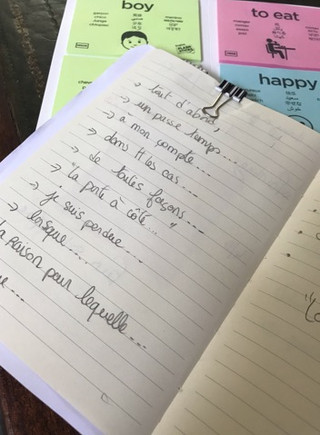 boy
to eat
happy
→ tout d'abord,
→ un passe temps...
→ à mon compte...
→ dans tt les cas...
→ de toutes façons...
→ "la porte à côté..."
→ je suis perdue...
→ lorsque...
la raison pour laquelle...